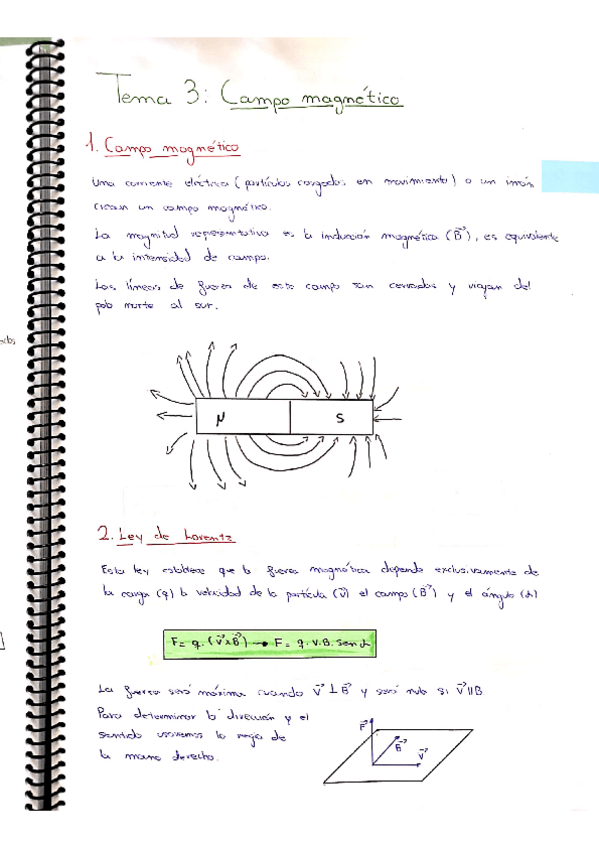 Tema 3: Campo magnético
1. Campo magnético
Una corriente eléctrica (partículas cargadas en movimiento) o un imán
crean un campo magnético.
La magnitud representativa es la inducción magnética (B⃗), es equivalente
a la intensidad de campo.
Las líneas de fuerza de este campo son cerradas y viajan del
polo norte al sur.
N S
2. Ley de Lorentz
Esta ley establece que la fuerza magnética depende exclusivamente de
la carga (q) la velocidad de la partícula (v⃗) el campo (B⃗) y el ángulo (α)
F = q. (v⃗xB⃗) → F = q.v.B.sen α
La fuerza será máxima cuando v⃗ ⊥ B⃗ y será nula si v⃗ || B
Para determinar la dirección y el
sentido usaremos la regla de
la mano derecha.
F⃗ B⃗ v⃗